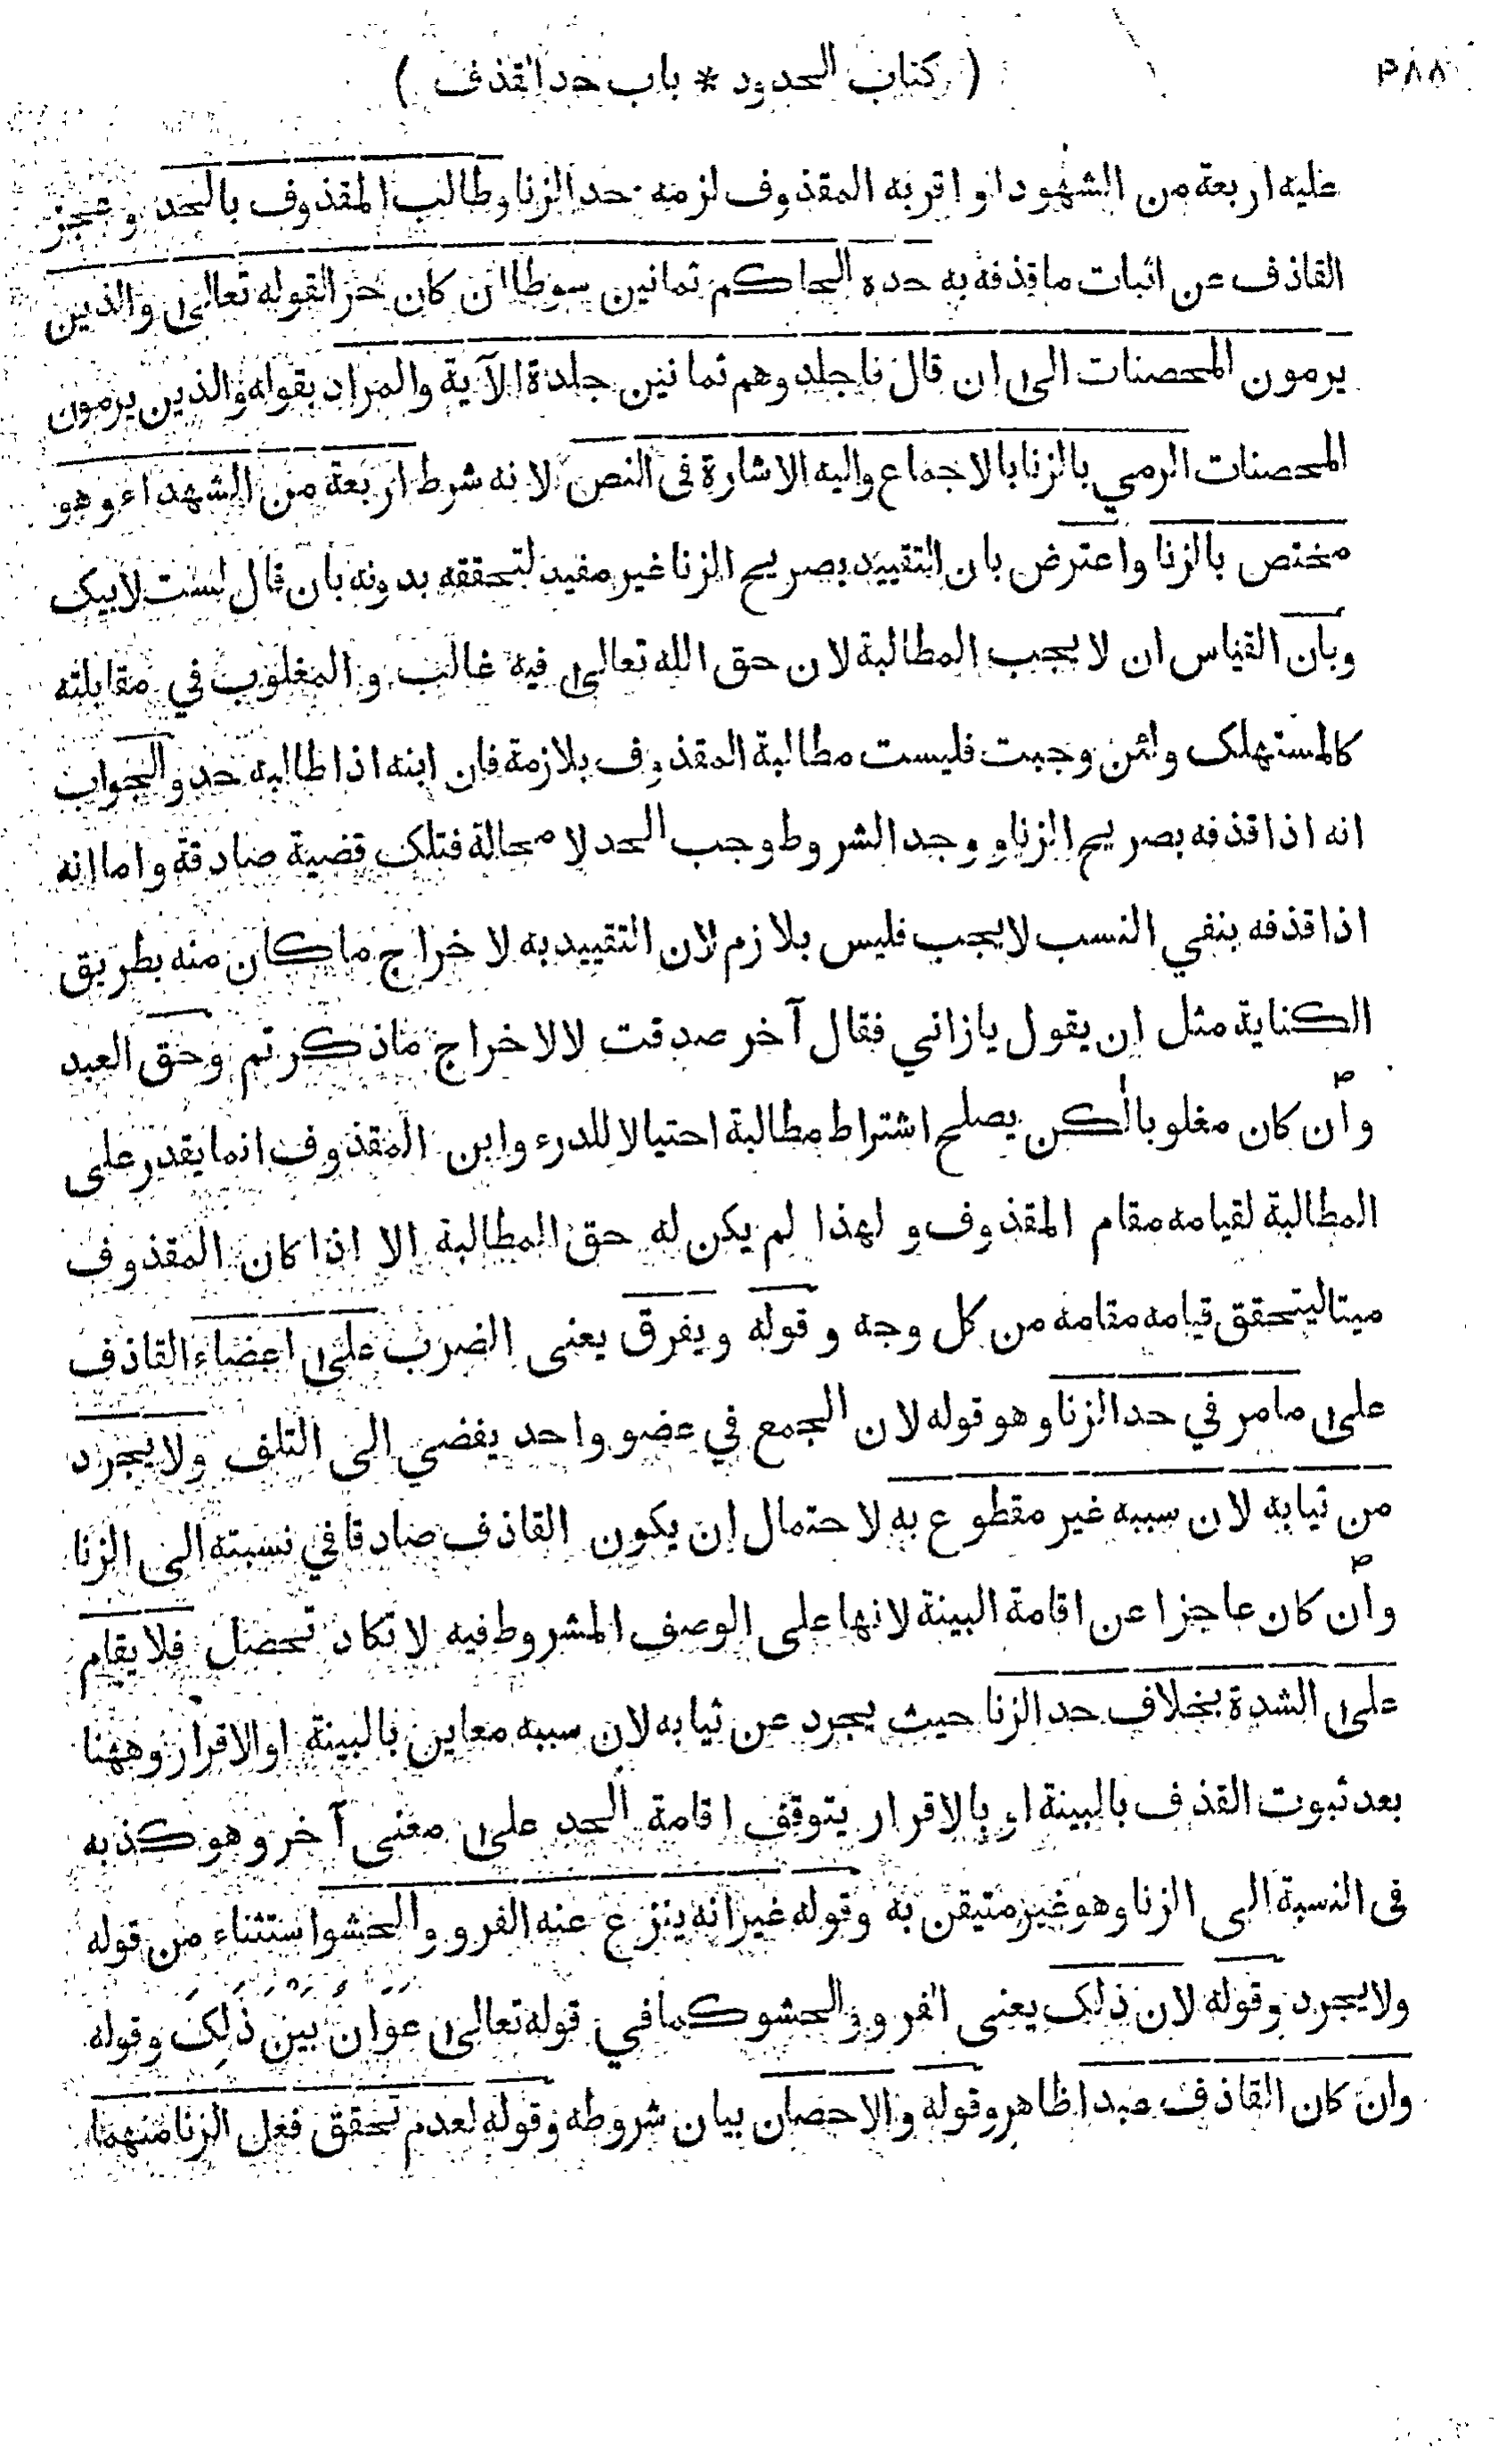 ( كتاب الحدود * باب حد القذف ) ٣٨٨
عليه اربعة من الشهود او اقر به المقذوف لزمه حد الزنا وطالب المقذوف بالحد وعجز
القاذف عن اثبات ما قذفه به حده الحاكم ثمانين سوطا ان كان حرا لقوله تعالى والذين
يرمون المحصنات الى ان قال فاجلدوهم ثمانين جلدة الآية والمراد بقوله والذين يرمون
المحصنات الرمي بالزنا بالاجماع واليه الاشارة فى النص لانه شرط اربعة من الشهداء وهو
مختص بالزنا واعترض بان التقييد بصريح الزنا غير مفيد لتحققه بدونه بان قال لست لابيك
وبان القياس ان لا يجب المطالبة لان حق الله تعالى فيه غالب والمغلوب في مقابلته
كالمستهلك ولئن وجبت فليست مطالبة المقذوف بلازمة فان ابنه اذا طالبه حد والجواب
انه اذا قذفه بصريح الزنا ووجد الشروط وجب الحد لا محالة فتلك قضية صادقة واما انه
اذا قذفه بنفي النسب لا يجب فليس بلازم لان التقييد به لاخراج ما كان منه بطريق
الكناية مثل ان يقول يا زاني فقال آخر صدقت لا لاخراج ما ذكرتم وحق العبد
وان كان مغلوبا لكن يصلح اشتراط مطالبة احتيالا للدرء وابن المقذوف انما يقدر على
المطالبة لقيامه مقام المقذوف و لهذا لم يكن له حق المطالبة الا اذا كان المقذوف
ميتا ليتحقق قيامه مقامه من كل وجه وقوله ويفرق يعنى الضرب على اعضاء القاذف
على ما مر في حد الزنا وهو قوله لان الجمع في عضو واحد يفضي الى التلف ولا يجرد
من ثيابه لان سببه غير مقطوع به لاحتمال ان يكون القاذف صادقا في نسبته الى الزنا
وان كان عاجزا عن اقامة البينة لانها على الوصف المشروط فيه لا تكاد تحصل فلا يقام
على الشدة بخلاف حد الزنا حيث يجرد عن ثيابه لان سببه معاين بالبينة او الاقرار وههنا
بعد ثبوت القذف بالبينة او بالاقرار يتوقف اقامة الحد على معنى آخر وهو كذبه
فى النسبة الى الزنا وهو غير متيقن به وقوله غير انه ينزع عنه الفرو والحشو استثناء من قوله
ولا يجرد وقوله لان ذلك يعنى الفرو والحشو كما في قوله تعالى عَوَانٌ بَيْنَ ذٰلِكَ وقوله
وان كان القاذف عبدا ظاهر وقوله والاحصان بيان شروطه وقوله لعدم تحقق فعل الزنا منهما